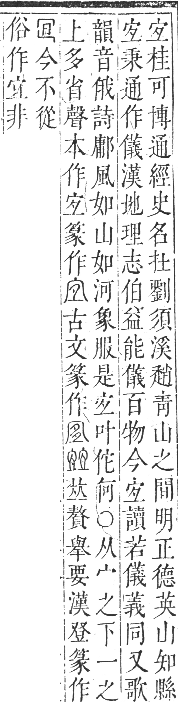 宐桂可博通經史名壯劉須溪趙靑山之間明正德英山知縣
宐秉通作儀漢地理志伯益能儀百物今宐讀若儀義同又歌
韻音俄詩鄘風如山如河象服是宐叶佗何○从宀之下一之
上多省聲本作宐篆作古文篆作竝贅舉要漢登篆作
今不從
俗作宜非